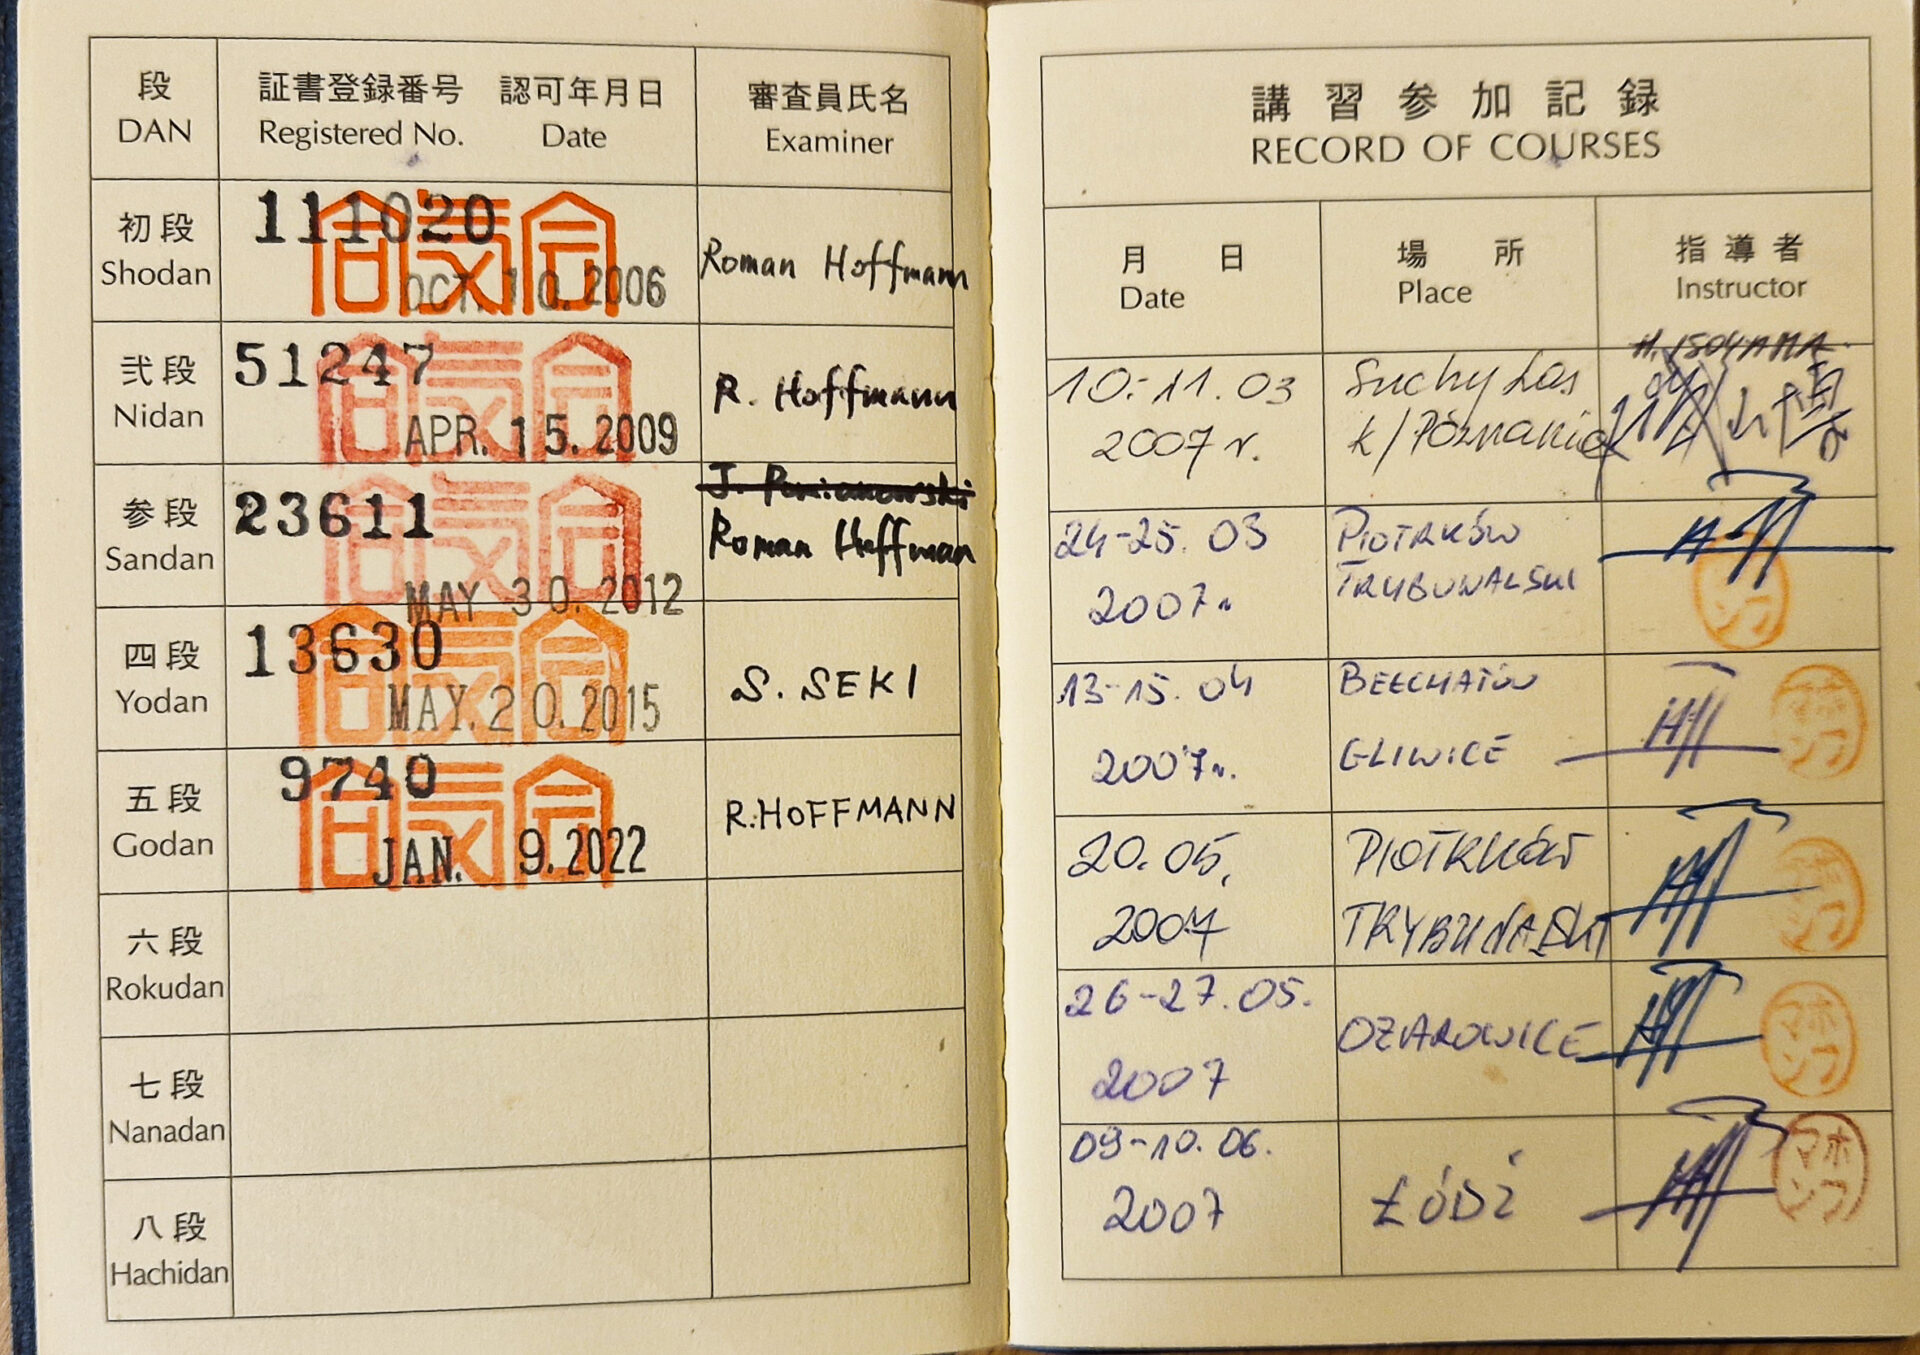 段
DAN
証書登録番号 認可年月日
Registered No. Date
審査員氏名
Examiner
初段
Shodan
111020
OCT. 10. 2006
合気会
Roman Hoffmann
弐段
Nidan
51247
APR. 15. 2009
合気会
R. Hoffmann
参段
Sandan
23611
MAY 30. 2012
合気会
Roman Hoffman
四段
Yodan
13630
MAY. 20. 2015
合気会
S. SEKI
五段
Godan
9740
JAN. 9. 2022
合気会
R. HOFFMANN
六段
Rokudan
七段
Nanadan
八段
Hachidan
講習参加記録
RECORD OF COURSES
月 日
Date
場 所
Place
指導者
Instructor
10-11.03
2007 r.
Suchy Las
k/Poznania
H. ISOYAMA
24-25. 03
2007r.
PIOTRKÓW
TRYBUNALSKI
13-15. 04
2007r.
BEŁCHATÓW
GLIWICE
20.05.
2007
PIOTRKÓW
TRYBUNALSKI
26-27.05.
2007
OŻAROWICE
ホフ
マン
09-10.06.
2007
ŁÓDŹ
ホフ
マン